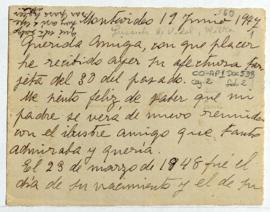 Montevideo 19 Junio 1947
Querida Amiga, con que placer
he recibido ayer su afectuosa tar
jeta del 30 del pasado.
Me siento feliz, de saber que mi
padre se vera de nuevo reunido
con el ilustre amigo que tanto
admiraba y queria.
El 23 de marzo de 1948 fue el
dia de su nacimiento y el de su